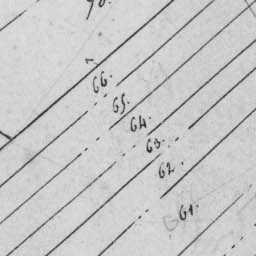 66.
65.
64.
63.
62.
61.